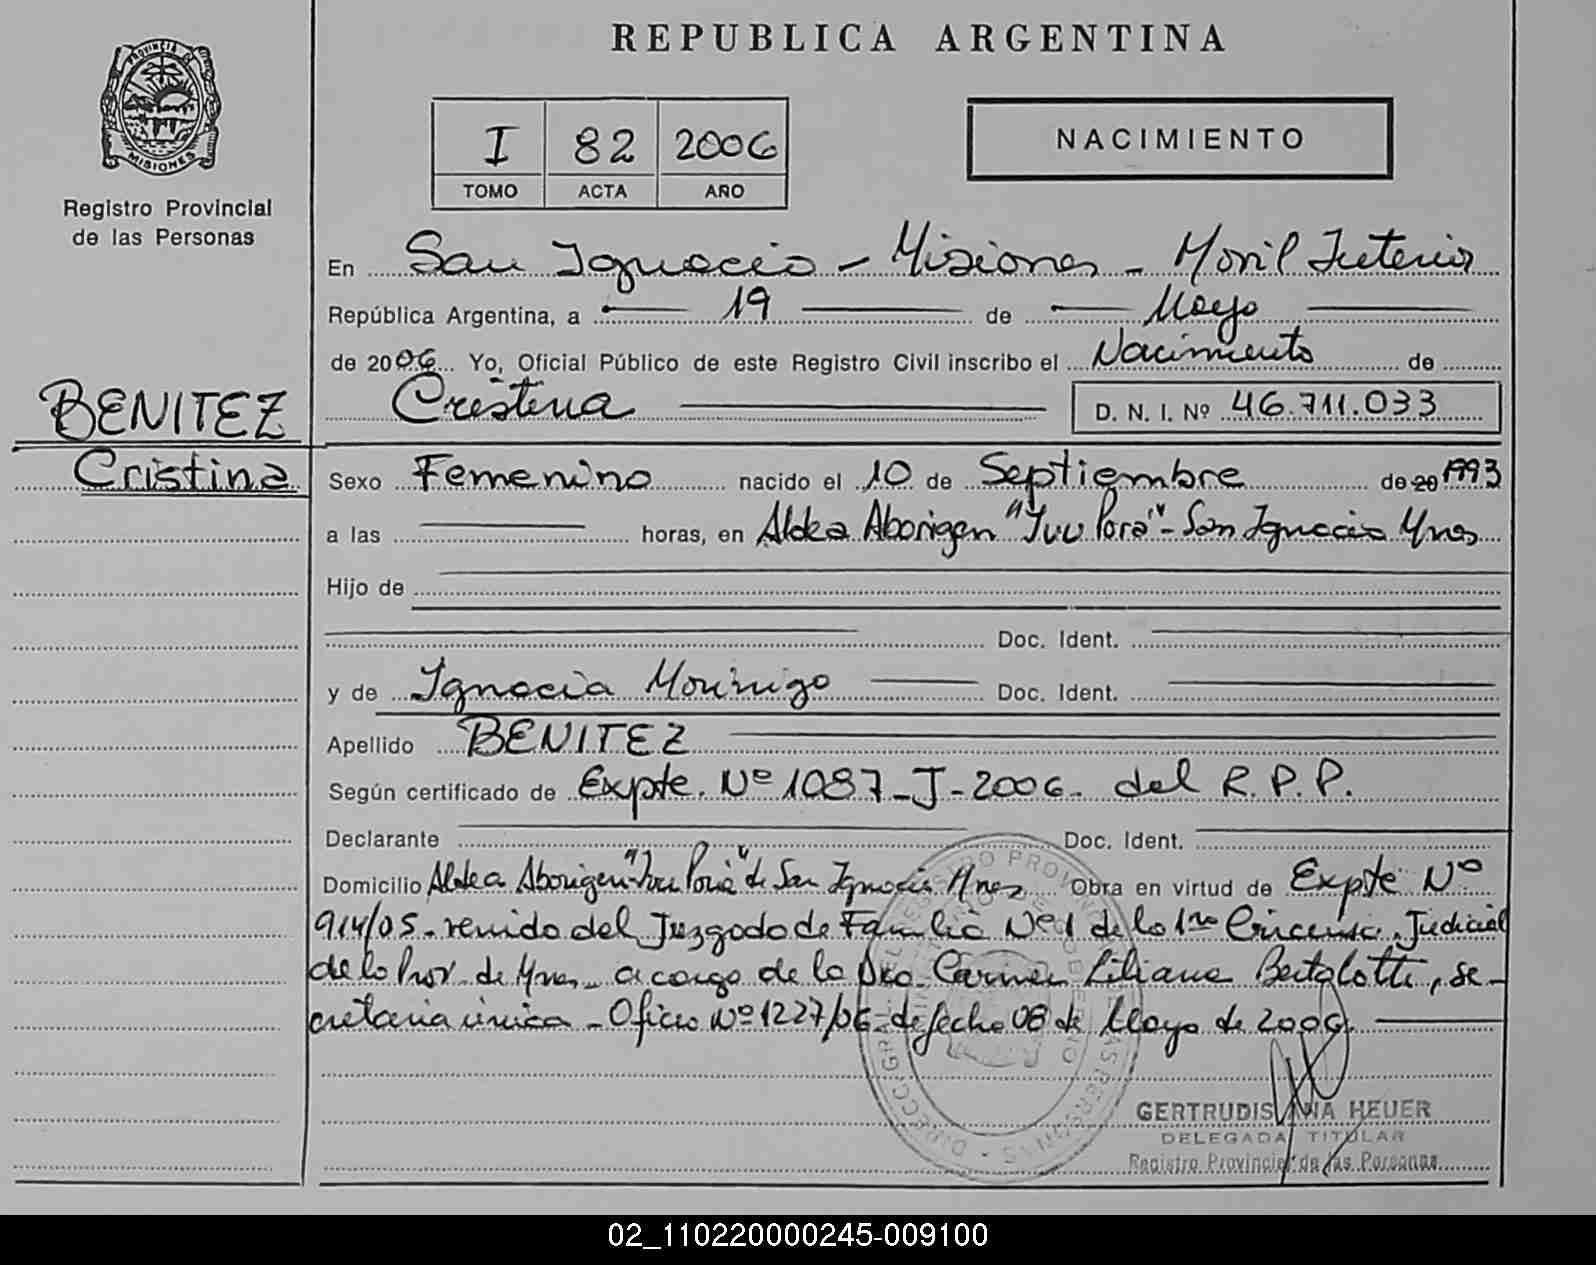 REPUBLICA ARGENTINA
PROVINCIA DE MISIONES
Registro Provincial
de las Personas
I 82 2006
TOMO ACTA AÑO
NACIMIENTO
En San Ignacio - Misiones - Movil Interior
República Argentina, a 19 de Mayo
de 2006 Yo, Oficial Público de este Registro Civil inscribo el Nacimiento de
Cristina D. N. I. Nº 46.711.033
BENITEZ
Cristina
Sexo Femenino nacido el 10 de Septiembre de 20 1993
a las horas, en Aldea Aborigen "Ivu Porá" - San Ignacio Mnes
Hijo de
Doc. Ident.
y de Ignacia Morinigo Doc. Ident.
Apellido BENITEZ
Según certificado de Expte. Nº 1087-J-2006- del R.P.P.
Declarante Doc. Ident.
Domicilio Aldea Aborigen "Ivu Porá" de San Ignacio Mnes Obra en virtud de Expte Nº
914/05- venido del Juzgado de Familia Nº1 de la 1ra Circunsc. Judicial
de la Prov. de Mnes- a cargo de la Dra. Carmen Liliana Bertolotti, se-
cretaria única - Oficio Nº 1227/06- de fecha 08 de Mayo de 2006.
GERTRUDIS HEUER
DELEGADA TITULAR
Registro Provincial de las Personas
02_110220000245-009100